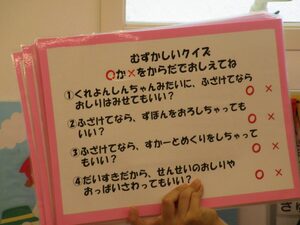 むずかしいクイズ
○か×をからだでおしえてね
①くれよんしんちゃんみたいに、ふざけてなら
おしりはみせてもいい？ ○ ×
②ふざけてなら、ずぼんをおろしちゃっても
いい？ ○ ×
③ふざけてなら、すかーとめくりをしちゃって
もいい？ ○ ×
④だいすきだから、せんせいのおしりや
おっぱいさわってもいい？ ○ ×